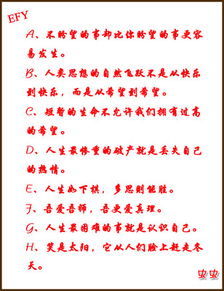 EFY
A、不盼望的事却比你盼望的事更容
易发生。
B、人类思想的自然飞跃不是从快乐
到快乐，而是从希望到希望。
C、短暂的生命不允许我们拥有过高
的希望。
D、人生最惨重的破产就是丢失自己
的热情。
E、人生如下棋，多思则能胜。
F、吾爱吾师，吾更爱真理。
G、人生最困难的事就是认识自己。
H、笑是太阳，它从人们脸上赶走冬
天。